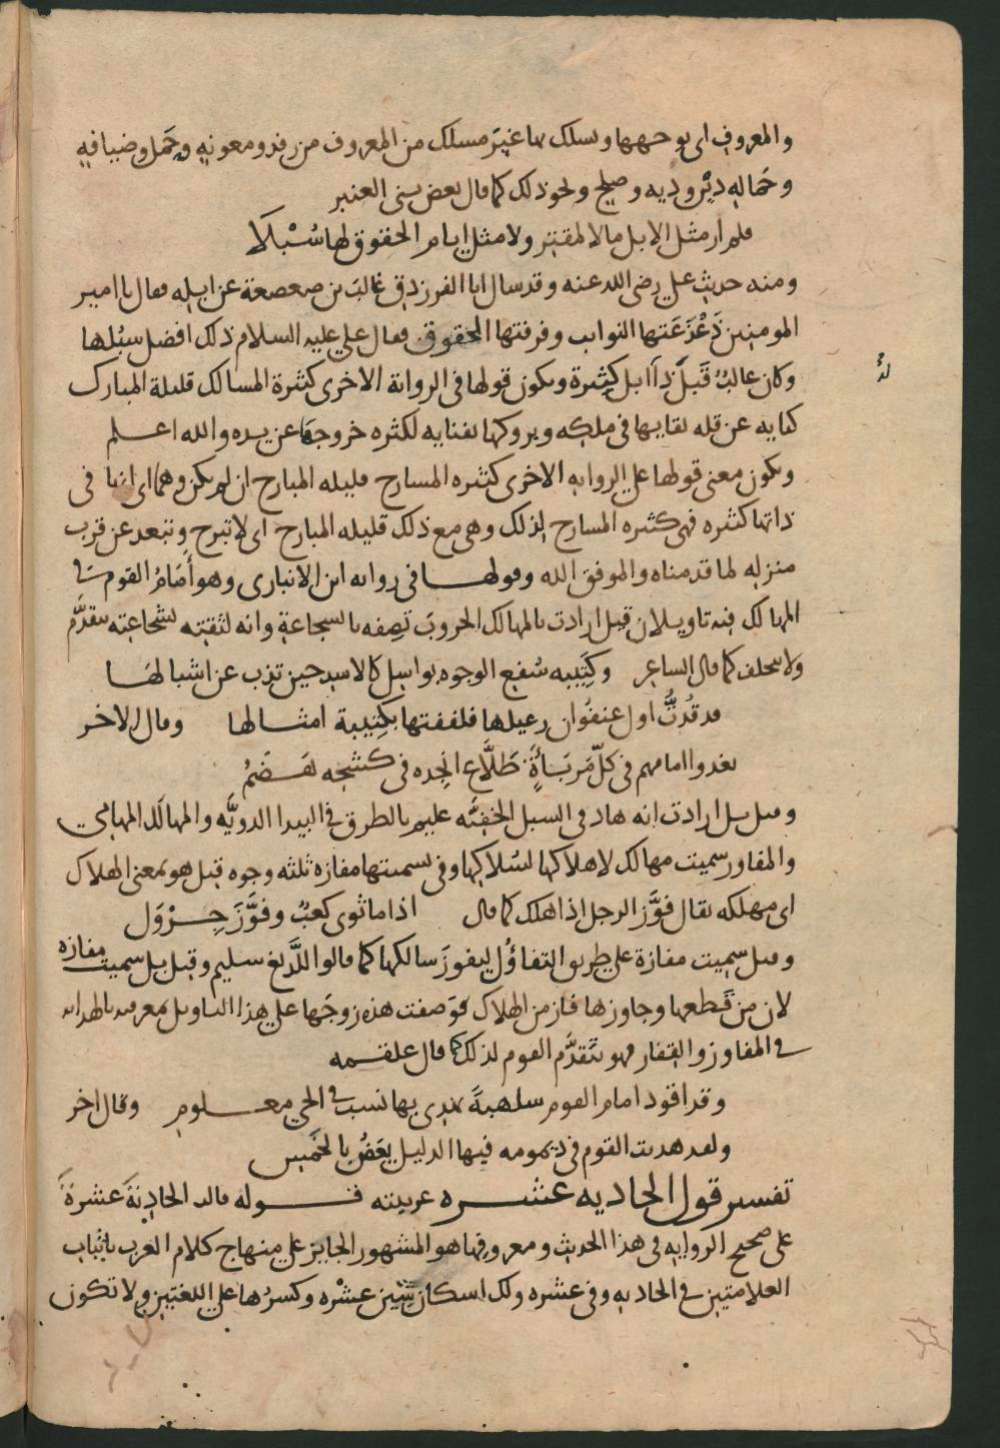 والمعروف اى يوجهها ويسلك بها غير مسلك من المعروف من رفد ومعونه وحمل وضيافه
وحماله دين وديه وصلح ونحو ذلك كما قال بعض بنى العنبر
فلم ار مثل الابل مالا لمقتر ولا مثل ايام الحقوق لها سُبْلاَ
ومنه حديث على رضى الله عنه وقد سال ابا الفرزدق غالب بن صعصعة عن ابله فقال يا امير
المومنين ذَعْذَعَتها النوايب وفرقتها الحقوق فقال على عليه السلام ذلك افضل سبُلها
وكان غالبُ قَبلُ ذا ابل كثيرة ويكون قولها فى الرواية الاخرى كثيرة المسالك قليلة المبارك
كنايه عن قله بقايها فى ملكه وبروكها بفنايه لكثره خروجها عن يده والله اعلم
ويكون معنى قولها على الروايه الاخرى كثيره المسارح قليله المبارح ان لم يكن وهما اى انها فى
ذاتها كثيره فهى كثيره المسارح لذلك وهى مع ذلك قليله المبارح اى لا تبرح وتبعد عن قرب
منزله لما قدمناه والموفق الله وقولها فى روايه ابن الانبارى وهو أَمَامُ القوم فى
المهالك فيه تاويلان قيل ارادت بالمهالك الحروبَ تَصِفه بالشجاعة وانه لثقته لشجاعته يتقدَّم
ولا يتخلف كما قال الشاعر وكَتِيبه سُفع الوجوه بواسِل كالاسدِ حين تذب عن اشبالها
قد قُدتُ اول عنفوان رعيلها فلففتها بكتيبة امثالها وقال الاخر
يغدوا امامهم فى كلّ مَربَأَةٍ طَلَّاع انجده فى كشحه هَضَمُ
وقيل بل ارادت انه هاد فى السبل الخفيَّه عليم بالطرق فى البيدا الدويَّه والمهالك المهامى
والمفاوز سميت مهالك لاهلاكها لسُلاكها وفى تسميتها مفازه ثلثه وجوه قيل هو بمعنى الهلاك
اى مهلكه يقال فوَّز الرجل اذا هلك كما قال اذا ما ثوى كعبٌ وفوَّزَ جِرْوَل
وقيل سميت مفازة على طريق التفاؤل ليفوزَ سالكها كما قالوا اللَّديغ سليم وقيل بل سميت مفازه
لان من قَطعها وجاوزها فاز من الهلاك فوَصفت هذه زوجَها على هذا التاويل بمعرفته بالهدايه
فى المفاوز والقفار فهو يتَقدَّم القوم لذلك كما قال علقمه
وقد اقود امام القوم سلهبةً يهدى بها نسب فى الحى معلوم وقال اخر
ولقد هديت القوم فى ديمومه فيها الدليل يعَضُ بالخَمِس
تفسير قول الحاديه عشره عربيته قوله قالت الحاديَةَ عشرةَ
على صحيح الروايه فى هذا الحديث ومعروفها هو المشهور الجايز على منهاج كلام العرب باثبات
العلامتين فى الحاديه وفى عشره ولك اسكان شِين عشْره وكسرُها على اللغتين ولا تكون